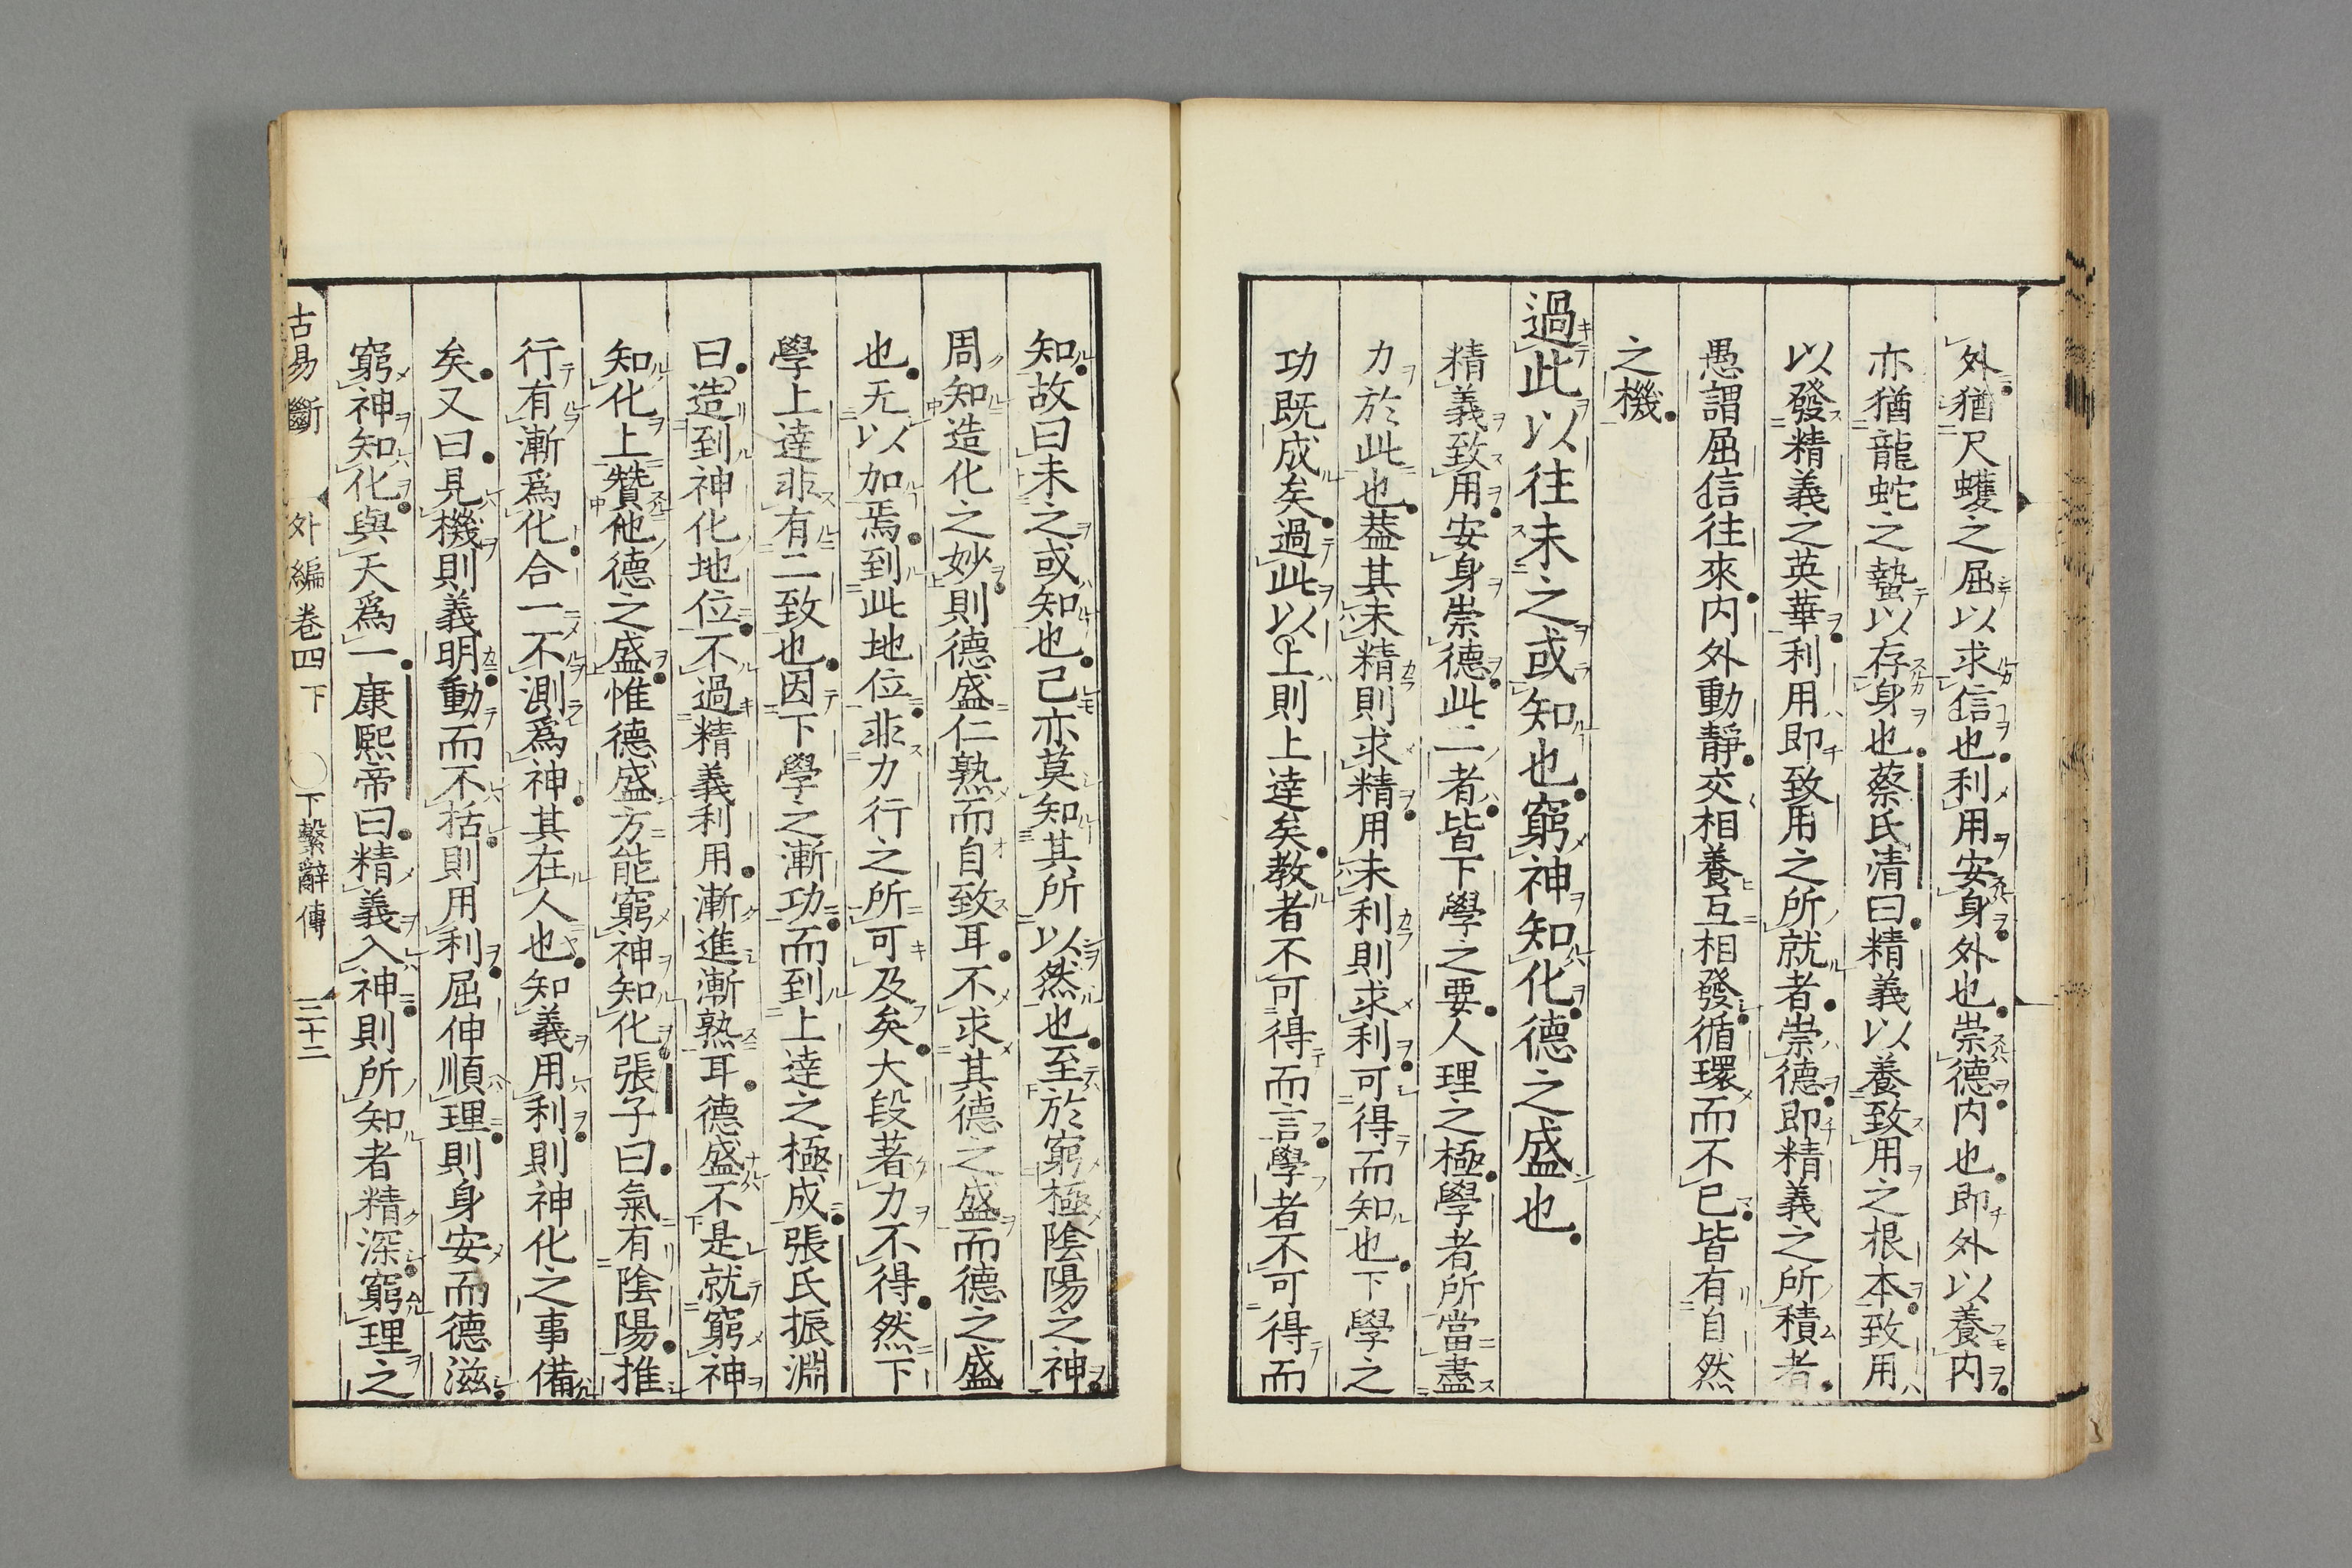 外猶尺蠖之屈以求信也利用安身外也崇德内也即外以養内
亦猶龍蛇之蟄以存身也蔡氏清曰精義以養致用之根本致用
以發精義之英華利用即致用之所就者崇德即精義之所積者
愚謂屈信往來内外動靜交相養互相發循環而不已皆有自然
之機
過此以往未之或知也窮神知化德之盛也
精義致用安身崇德此二者皆下學之要人理之極學者所當盡
力於此也蓋其未精則求精用未利則求利可得而知也下學之
功既成矣過此以上則上達矣教者不可得而言學者不可得而
知故曰未之或知也己亦莫知其所以然也至於窮極陰陽之神
周知造化之妙則德盛仁熟而自致耳不求其德之盛而德之盛
也无以加焉到此地位非力行之所可及矣大段著力不得然下
學上達非有二致也因下學之漸功而到上達之極成張氏振淵
曰造到神化地位不過精義利用漸進漸熟耳德盛不是就窮神
知化上贊他德之盛惟德盛方能窮神知化張子曰氣有陰陽推
行有漸爲化合一不測爲神其在人也知義用利則神化之事備
矣又曰見機則義明動而不括則用利屈伸順理則身安而德滋
窮神知化與天爲一康熙帝曰精義入神則所知者精深窮理之
古易斷　外編卷四下　〇下繫辭傳　三十二